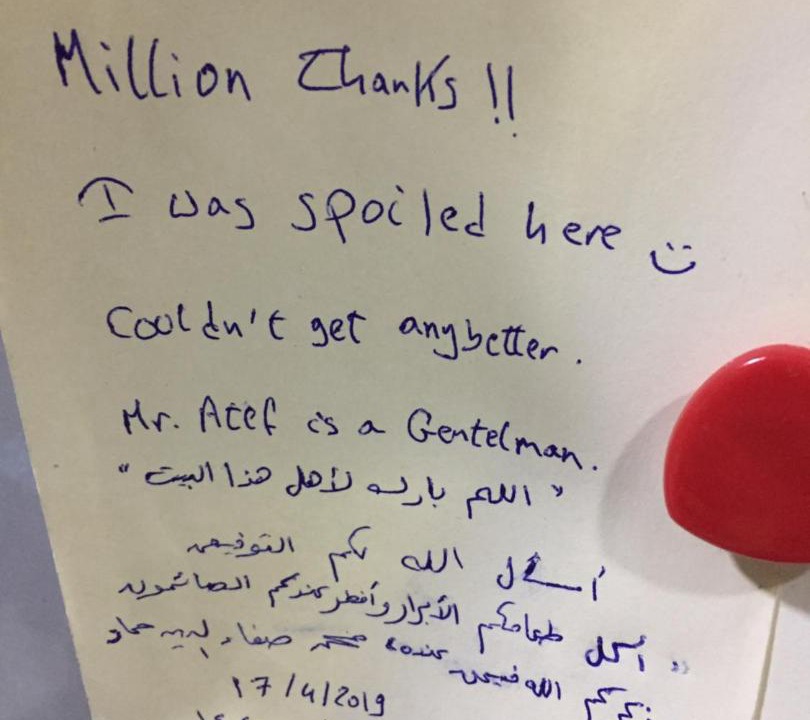 Million Thanks !!
I was spoiled here :)
Couldn't get anybetter.
Mr. Atef is a Gentelman.
"اللهم بارك لأهل هذا البيت"
أسأل الله لكم التوفيق
"أكل طعامكم الأبرار وأفطر عندكم الصائمون
وذكركم الله فيمن عنده" صفاء الدين حماد
17/4/2019